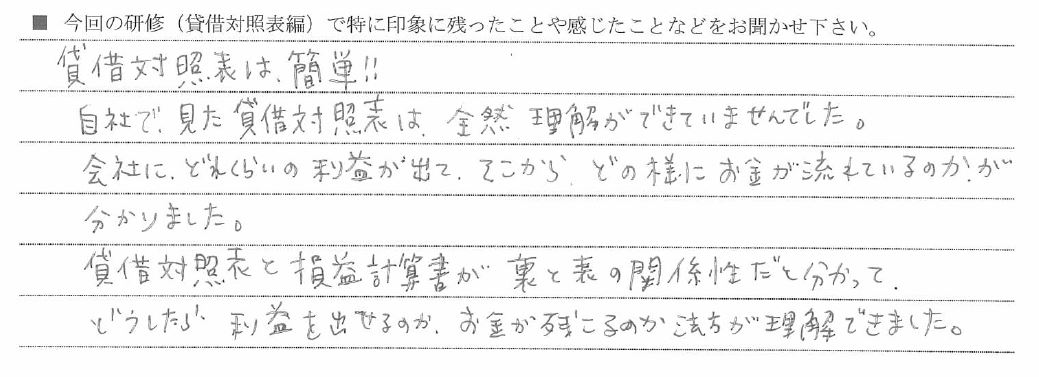 ■ 今回の研修（貸借対照表編）で特に印象に残ったことや感じたことなどをお聞かせ下さい。
貸借対照表は、簡単!!
自社で、見た貸借対照表は、全然理解ができていませんでした。
会社に、どれくらいの利益が出て、そこから、どの様にお金が流れているのか、が
分かりました。
貸借対照表と損益計算書が裏と表の関係性だと分かって、
どうしたら、利益を出せるのか、お金が残こるのか 理解できました。